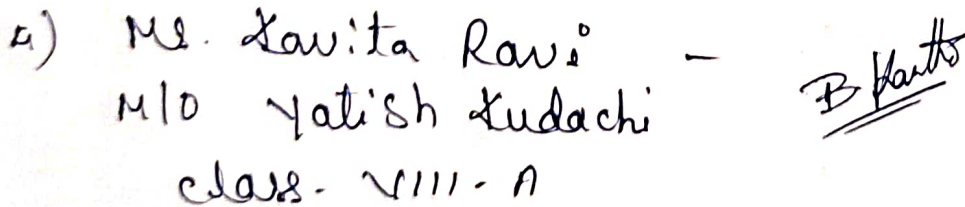 4) Ms. Kavita Ravi -
M/O Yatish Kudachi
class - VIII - A
B